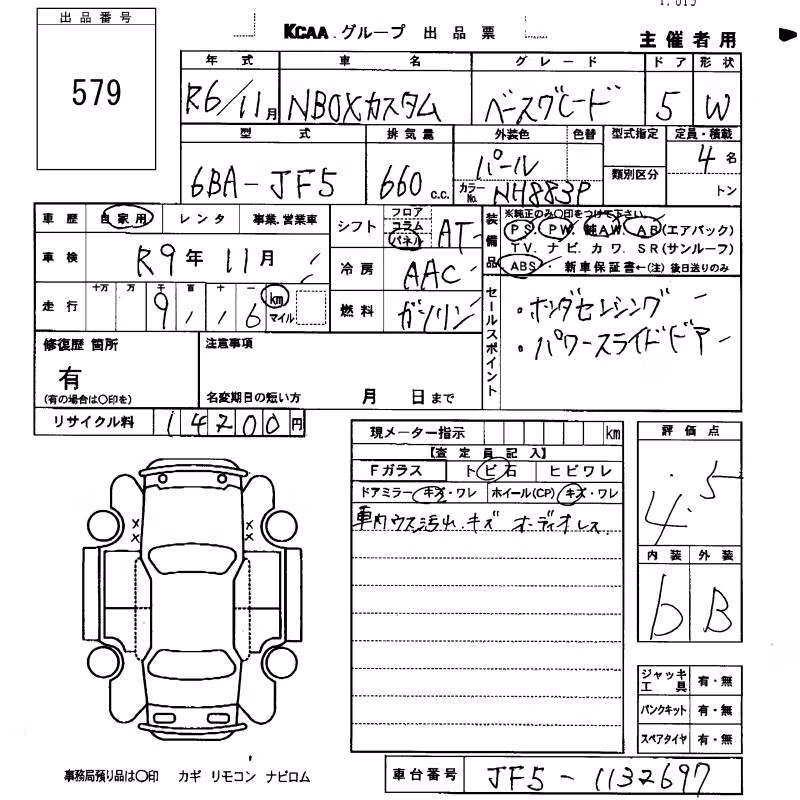 出品番号
579
KCAA グループ 出品票
主催者用
年式 車名 グレード ドア 形状
R6/11月 NBOXカスタム ベースグレード 5 W
型式 排気量 外装色 色替 型式指定 定員・積載
6BA-JF5 660 c.c. パール 類別区分 4名
カラーNo. NH883P トン
車歴 自家用 レンタ 事業.営業車
シフト フロア コラム パネル AT
装備品 ※純正のみ〇印をつけて下さい。
PS. PW. 純AW. AB(エアバック)
TV. ナビ. カワ. SR(サンルーフ)
ABS・ 新車保証書←(注)後日送りのみ
車検 R9年 11月
冷房 AAC
走行 十万 万 千 百 十 一 km マイル
燃料 ガソリン
セールスポイント
・ホンダセンシング
・パワースライドドアー
修復歴 箇所
有
(有の場合は〇印を)
注意事項
名変期日の短い方 月 日まで
リサイクル料 14200円
現メーター指示 km
【査定員記入】
Fガラス トビ石 ヒビワレ
ドアミラー キズ・ワレ ホイール(CP) キズ・ワレ
車内ウス汚れ.キズ オーディオレス
評価点
4.5
内装 外装
b B
ジャッキ工具 有・無
パンクキット 有・無
スペアタイヤ 有・無
事務局預り品は〇印 カギ リモコン ナビロム
車台番号 JF5-1132697